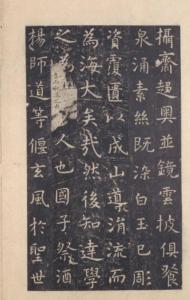 攝齋趨奧並鏡雲披俱飡
泉涌素絲既染白玉已彫
資覆匱以成山導涓流而
為海大矣哉然後知達學
之為人也國子祭酒
揚師道等偃玄風於聖世